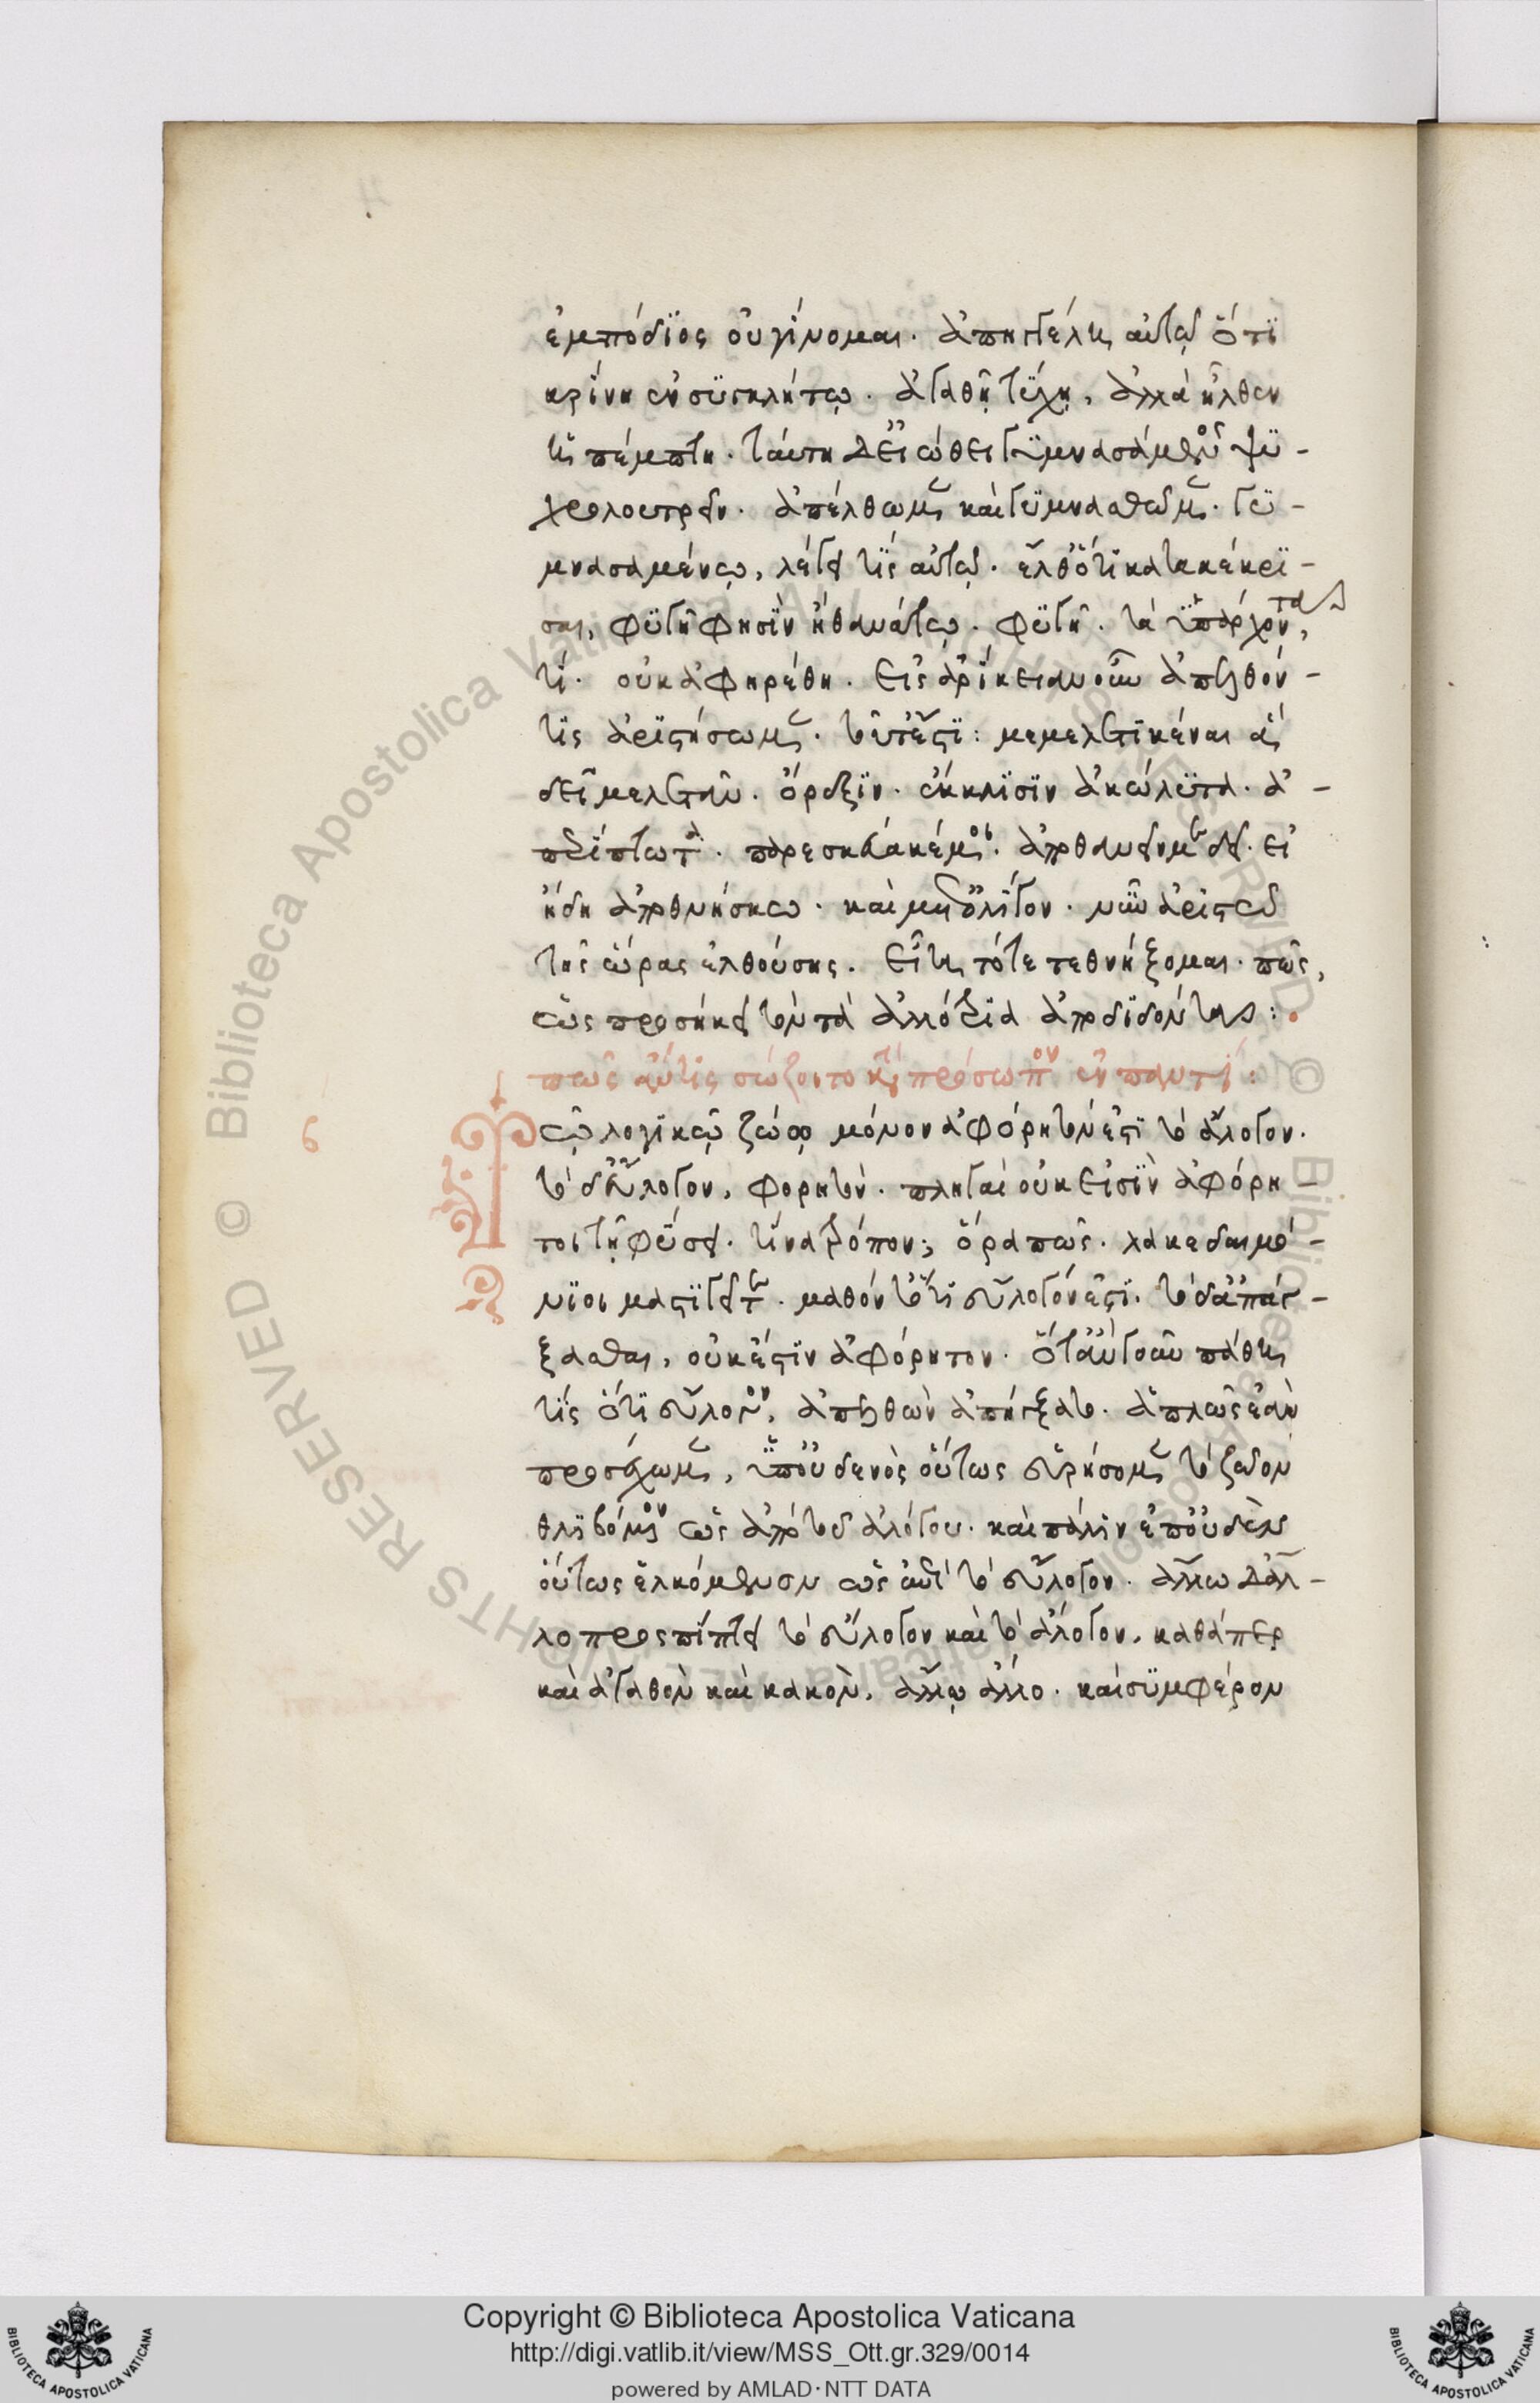 ἐμπόδϊος οὐ γίνομαι. ἀπηγγέλη αὐτῶ ὅτϊ
κρίνη ἐν συγκλήτω. ἀγαθῆ τύχη, ἀλλὰ ἦλθεν
ἡ πέμπτη. ταύτη δ' εἰώθει γυμνασάμενος ψυ-
χρολουτρεῖν. ἀπέλθωμεν καὶ γυμνασθῶμεν. γυ-
μνασαμένω, λέγει τὶς αὐτῶ. ἐλθὼν ὅτι κατακέκρι-
σαι, φυγῆ φησὶν ἢ θανάτω. φυγῆ. τὰ ὑπάρχοντα
τί. οὐκ ἀφηρέθη. εἰς ἀρίκειαν οὖν ἀπελθόν-
τες ἀριστήσωμεν. τοῦτ' ἔστι: μεμελετικέναι ἃ
δεῖ μελετᾶν. ὄρεξιν. ἔκκλισιν ἀκώλυτα. ἀ-
περίπτωτα. παρεσκευακέναι. ἀποθανεῖν με δεῖ. εἰ
ἤδη ἀποθνήσκω. καὶ μετ' ὀλίγον. νῦν ἀριστῶ
τῆς ὥρας ἐλθούσης. εἶτα τότε τεθνήξομαι. πῶς,
ὡς προσήκει τὸν τὰ ἀλλότρια ἀποδιδόντα:
πῶς ἄν τις σώζοι τὸ κατὰ πρόσωπον ἐν παντί:
6
Τῶ λογικῶ ζώω μόνον ἀφόρητόν ἐστι τὸ ἄλογον.
τὸ δ' εὔλογον, φορητόν. πληγαὶ οὐκ εἰσὶν ἀφόρη-
τοι τῆ φύσει. τίνα τρόπον; ὅρα πῶς. λακεδαιμό-
νιοι μαστιγοῦνται. μαθόντες ὅτι εὔλογόν ἐστι. τὸ δ' ἀπάγ-
ξασθαι, οὐκ ἔστιν ἀφόρητον. ὅταν γοῦν πάθη
τὶς ὅτι εὔλογον, ἀπελθὼν ἀπήγξατο. ἁπλῶς ἐὰν
προσέχωμεν, ὑπ' οὐδενὸς οὕτως εὑρήσομεν τὸ ζῶον
θλιβόμενον ὡς ἀπὸ τοῦ ἀλόγου. καὶ πάλιν ἐπ' οὐδὲν
οὕτως ἑλκόμενον ὡς ἐπὶ τὸ εὔλογον. ἄλλω δ' ἄλ-
λο προσπίπτει τὸ εὔλογον καὶ τὸ ἄλογον, καθάπερ
καὶ ἀγαθὸν καὶ κακὸν, ἄλλω ἄλλο. καὶ συμφέρον
Copyright © Biblioteca Apostolica Vaticana
http://digi.vatlib.it/view/MSS_Ott.gr.329/0014
powered by AMLAD·NTT DATA